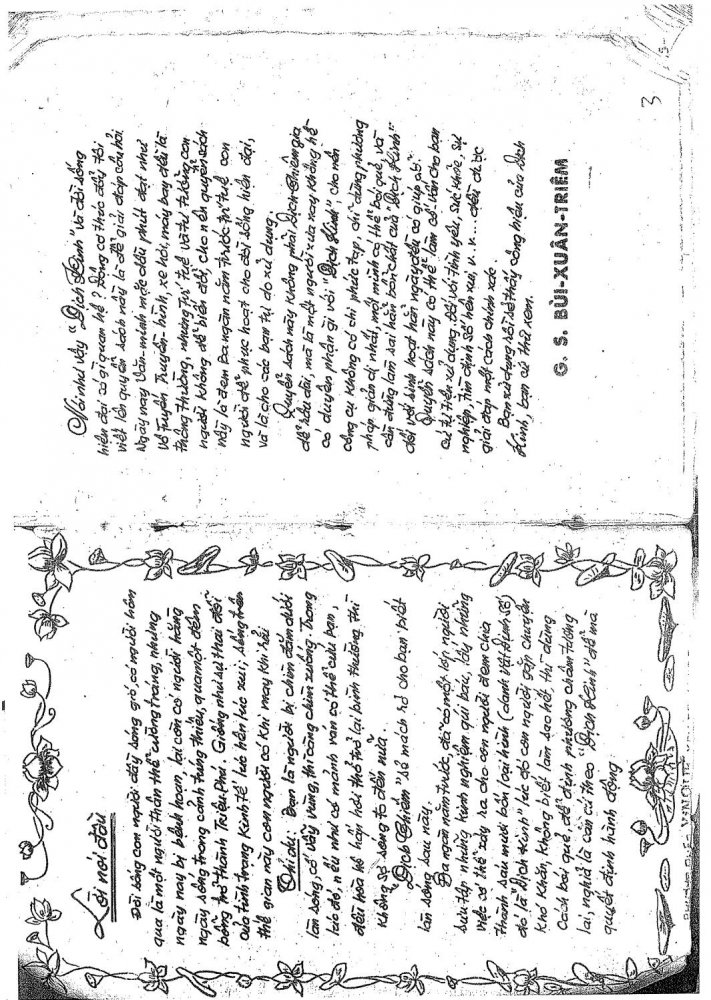 Lời nói đầu
Đời sống con người đầy sóng gió, có người hôm
qua là một người thân thể cường tráng, nhưng
ngày nay bị bệnh hoạn, lại còn có người hằng
ngày sống trong cảnh túng thiếu, qua một đêm
bổng trở thành Triệu Phú. Giống như sự thai đổi
của tình trang Kinh tế lúc hên lúc xui; sống trên
thế gian này con người có khi may khi rủi
Thí dụ: Bạn là người bị chìm đấm dưới
làn sóng, cố vẫy vùng, thì càng chìm xuống. Trong
lúc đó, nếu như có mảnh ván có thể cứu bạn,
điều hòa hế hân hơi thở trở lại bình thường thì
không sợ sóng to đến nữa.
"Dịch Nghiệm" sẽ mách rỏ cho bạn biết
làn sóng sau này.
Ba ngàn năm trước, đã có một lớp người
sưu tập những kinh nghiệm quí báu, lấy những
việc có thể xảy ra cho con người đem chia
thành sáu mươi bốn loại hình (danh vật định số)
đó là "Dịch Kinh" lúc đó con người gặp chuyện
khó khăn, không biết làm sao hết, thì dùng
cách bói quẻ, để định phương châm tương
lai, nghĩa là căn cứ theo "Dịch Kinh" để mà
quyết định hành động
Nói như vậy "Dịch Kinh" và đời sống
hiện đại có gì quan hệ? Động cơ thúc đẩy tôi
viết lên quyển sách này là để giải đáp câu hỏi.
Ngày nay Văn-minh mặc dầu phát đạt như
Vô Tuyến Truyền-hình, xe hơi, máy bay đều là
thông thường, nhưng trí tuệ và tư tưởng con
người không dễ biến đổi, cho nên quyển sách
nầy là đem Ba ngàn năm trước trí tuệ con
người để phục hoạt cho đời sống hiện đại,
và là cho các bạn tự do xử dụng
Quyển sách này không phải Dịch Chiêm gia
để hậu đài, mà là một người xưa nay không hề
có duyên phận gì với "Dịch Kinh", cho nên
công cụ không có chi phức tạp, chỉ dùng phương
pháp giản dị nhất, một mình có thể bói quẻ, và
cần đừng làm sai hẳn bổn chất của "Dịch Kinh"
đối với sinh hoạt hằng ngày đều có giúp đỡ.
Quyển sách này có thể làm cố vấn cho bạn
cứ tự tiện xử dụng. Đối với tình yêu, sức khỏe, sự
nghiệp, tìm định số hên xui, v. v... đều được
giải đáp một cách chính xác.
Bạn xử dụng rồi sẽ thấy công hiệu của Dịch
Kinh, bạn cứ thử xem.
G. S. BÙI-XUÂN-TRIÊM
3